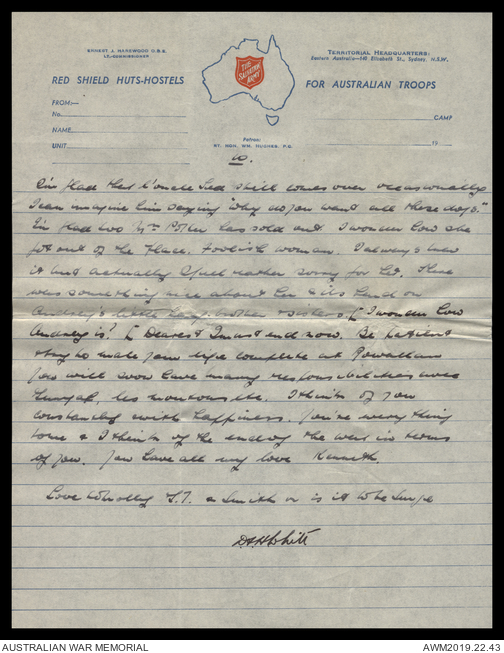 ERNEST J. HAREWOOD O.B.E.
LT.-COMMISSIONER
THE SALVATION ARMY
TERRITORIAL HEADQUARTERS:
Eastern Australia—140 Elizabeth St., Sydney, N.S.W.
RED SHIELD HUTS-HOSTELS
FOR AUSTRALIAN TROOPS
FROM:—
No.
CAMP
NAME
UNIT
19
Patron:
RT. HON. WM. HUGHES, P.C.
10.
I'm glad that Uncle still comes over occasionally
I can imagine him saying "Why do you want all these dogs."
I'm glad too Mrs Potter has sold out. I wonder how she
got out of the place. Foolish woman. I always knew
it but actually I feel rather sorry for her. There
was something nice about her & its hard on
Audrey's little brother & sister. [ I wonder how
Audrey is? [ Dearest I must end now. Be patient
try to make your life complete at
you will soon have many responsibilities
etc. I think of you
constantly with happiness. You're everything
to me & I think of the end of the war in terms
of you. You have all my love Kenneth.
Love a Smith or is it
D A H White
AUSTRALIAN WAR MEMORIAL
AWM2019.22.43